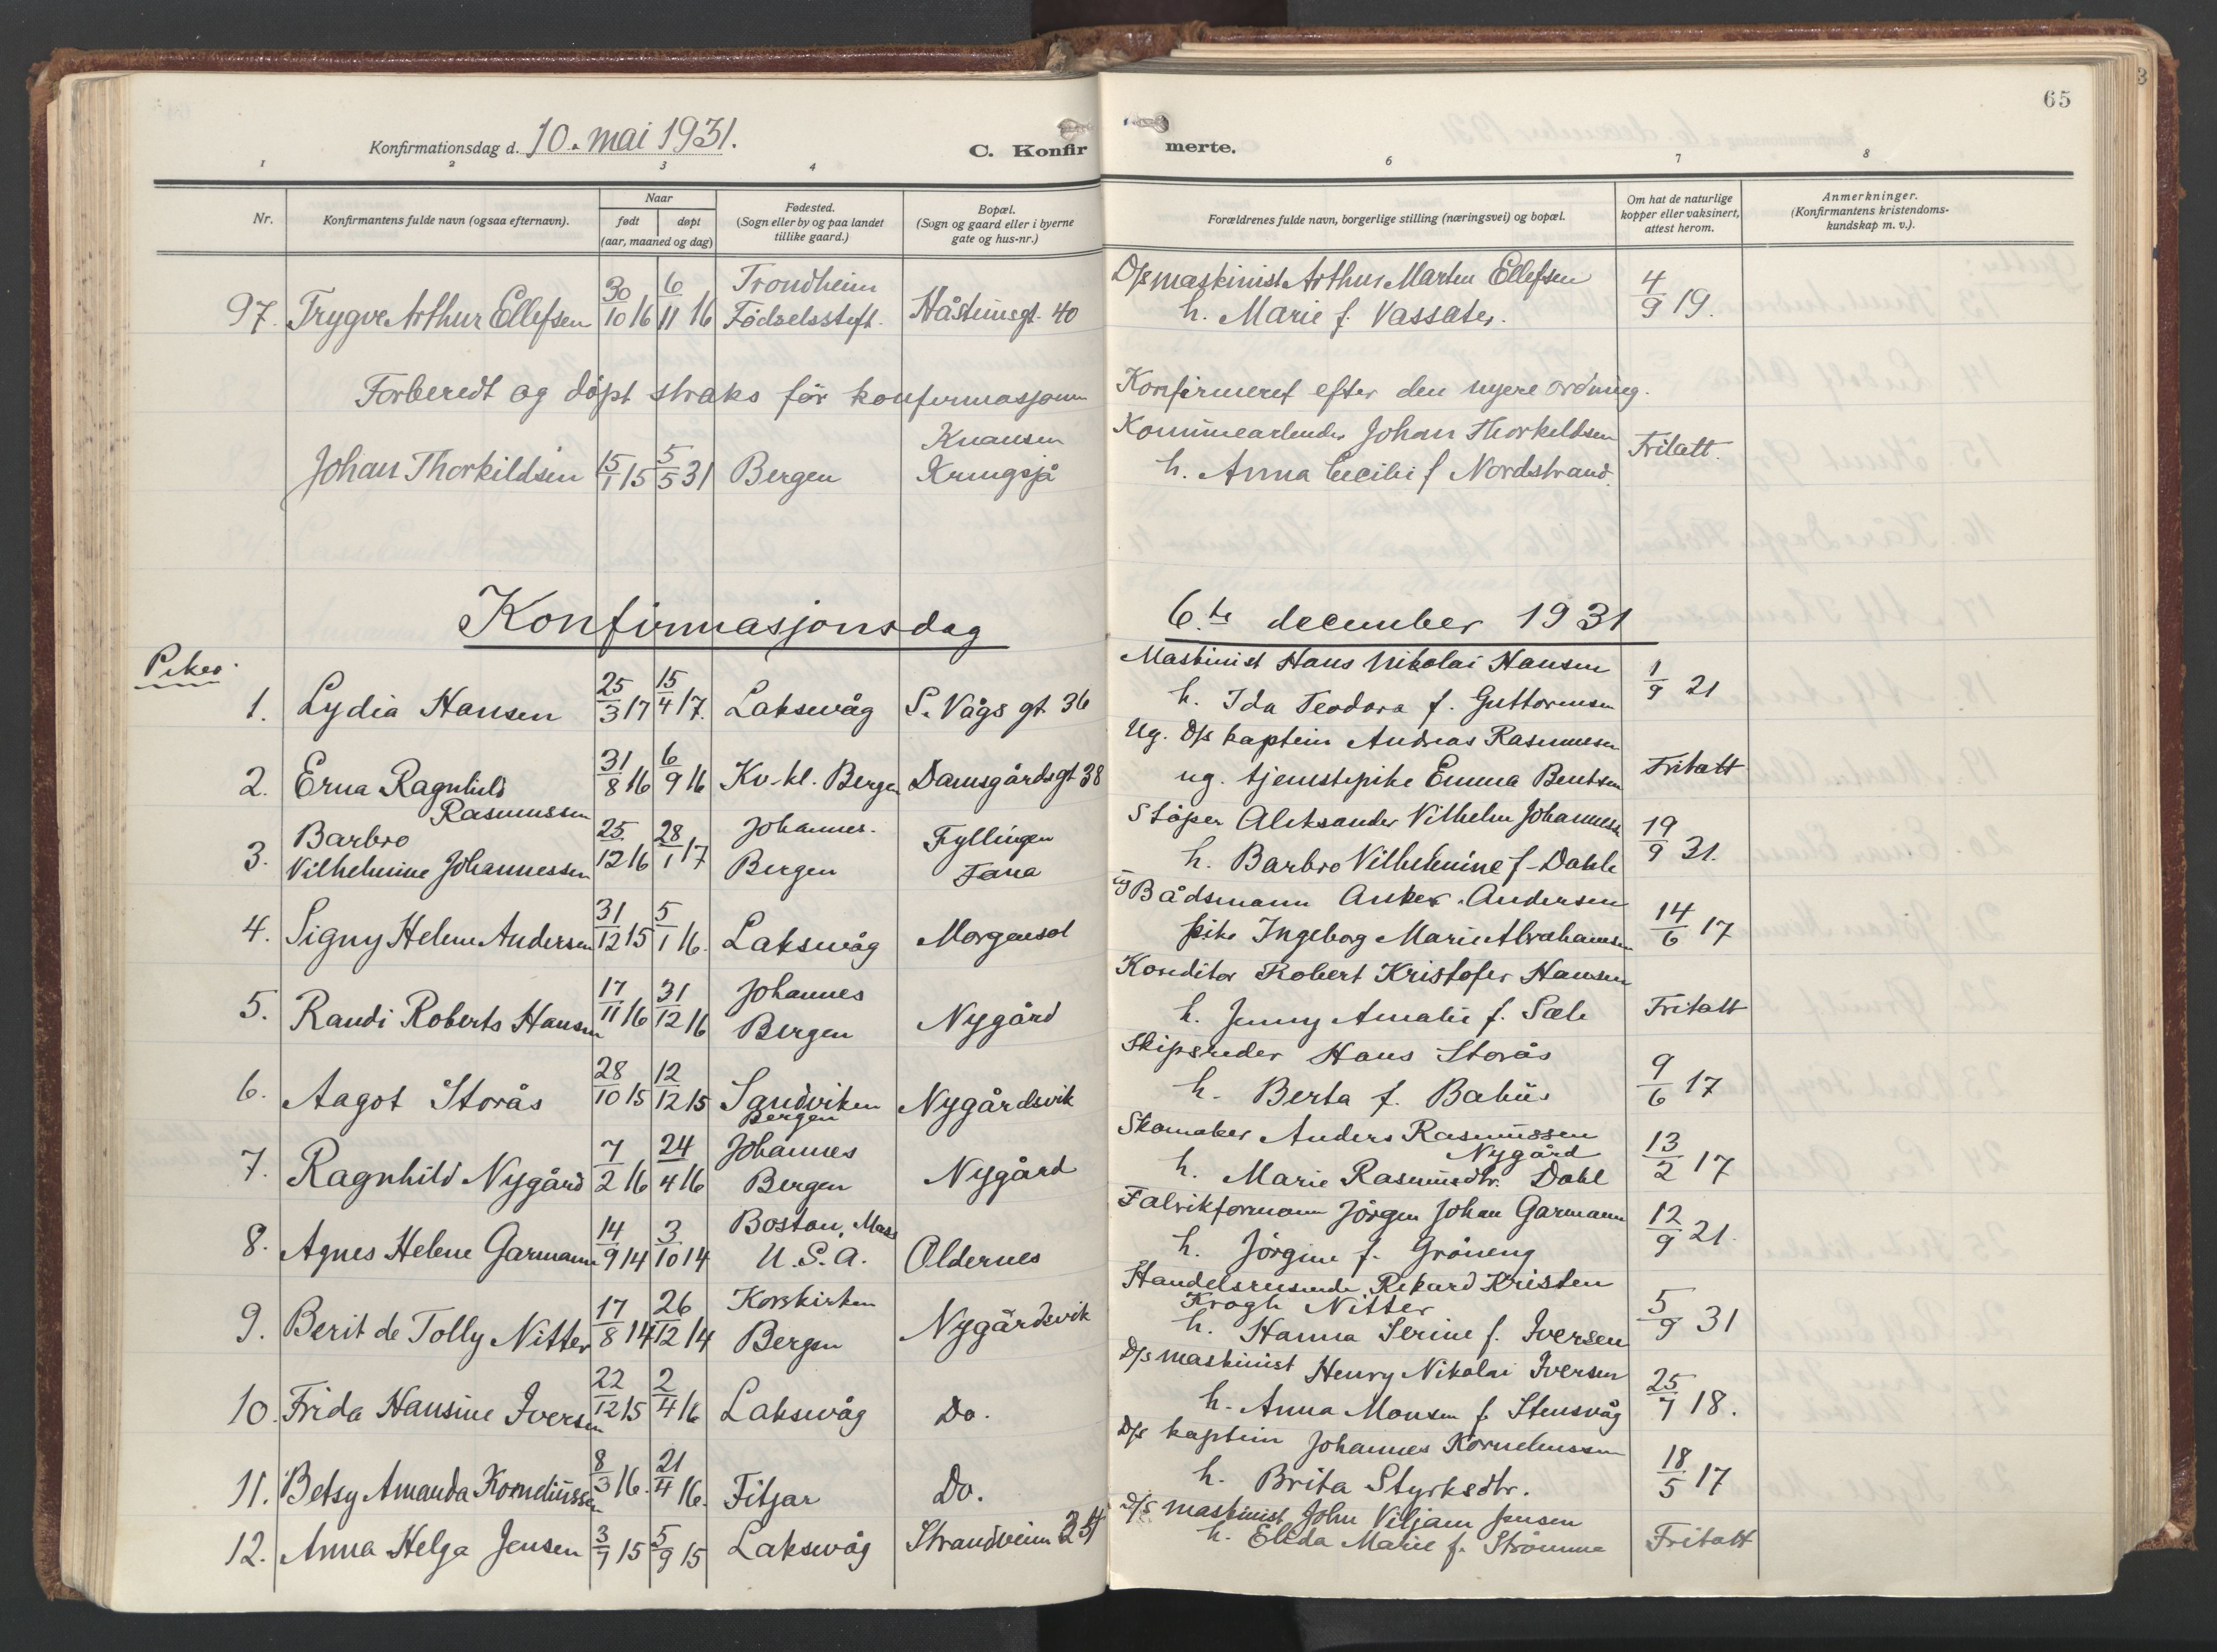 65
Konfirmationsdag d. 10. mai 1931.
C. Konfirmerte.
1 2 3 4 6 7 8
Nr.
Konfirmantens fulde navn (ogsaa efternavn).
Naar
født døpt
(aar, maaned og dag)
Fødested.
(Sogn eller by og paa landet
tillike gaard.)
Bopæl.
(Sogn og gaard eller i byerne
gate og hus-nr.)
Forældrenes fulde navn, borgerlige stilling (næringsvei) og bopæl.
Om hat de naturlige
kopper eller vaksinert,
attest herom.
Anmerkninger.
(Konfirmantens kristendoms-
kundskap m. v.).
Trondheim D/s maskinist Arthur Martin Ellefsen
97. Trygve Arthur Ellefsen 30/10 16 6/11 16 Fødselsstift. Håsteinsgt. 40 h. Marie f. Vassater. 4/9 19.
Forberedt og døpt straks før konfirmasjonen Konfirmeret efter den nyere ordning.
Knausen Kommunearbeider Johan Thorkildsen
Johan Thorkildsen 15/1 15 5/5 31 Bergen Kringsjå h. Anna Cecilie f Nordstrand. Fritatt.
Konfirmasjonsdag 6.te december 1931
Piker.
Maskinist Hans Nikolai Hansen
1. Lydia Hansen 25/3 17 15/4 17. Laksevåg S. Vågs gt 36 h. Ida Teodora f. Guttormsen 1/9 21
Ug. D/s kaptein Andreas Rasmussen
2. Erna Ragnhild 31/8 16 6/9 16 Kv-kl. Bergen Damsgårdsgt 38 ug. tjenestepike Emma Bentsen Fritatt
Rasmussen
Barbro Johannes. Fyllingen Støper Aleksander Vilhelm Johannessen
3. Vilhelmine Johannessen 25/12 16 28/1 17 Bergen Fana h. Barbro Vilhelmine f. Dahle 19/9 31.
ug Bådsmann Anker Andersen
4. Signy Helene Andersen 31/12 15 5/1 16. Laksevåg Morgensol pike Ingeborg Marie Abrahamsen 14/6 17
Johannes Konditor Robert Kristofer Hansen
5. Randi Roberts Hansen 17/11 16 31/12 16 Bergen Nygård h. Jenny Amalie f. Sæle Fritatt
Skipsreder Hans Storås
6. Aagot Storås 28/10 15 12/12 15 Sandviken Nygårdsvik h. Berta f. 9/6 17
Bergen
Johannes Skomaker Anders Rasmussen
Nygård
7. Ragnhild Nygård 7/2 16 24/4 16 Bergen Nygård h. Marie Rasmusdtr. Dahl 13/2 17
Boston, Mass Fabrikformann Jörgen Johan Garmann
8. Agnes Helene Garmann 14/9 14 3/10 14 U.S.A. Oldernes h. Jörgine f. Gröneng 12/9 21.
Korskirken Handelsreisende Rikard Kristen
Krogh Nitter
9. Berit de Tolly Nitter 17/8 14 26/12 14 Bergen Nygårdsvik h. Hanna Serine f. Iversen 5/9 31
D/s maskinist Henry Nikolai Iversen
10. Frida Hansine Iversen 22/12 15 2/4 16 Laksevåg Do. h. Anna Monsen f. Stensvåg 25/7 18.
D/s kaptein Johannes Korneliussen
11. Betsy Amanda Korneliussen 8/3 16. 21/4 16. Fitjar Do. h. Brita Styrksdtr. 18/5 17
D/s maskinist John Viljam Jensen
12. Anna Helga Jensen 3/7 15 5/9 15 Laksevåg Strandveien h. Elida Marie f. Strömme Fritatt